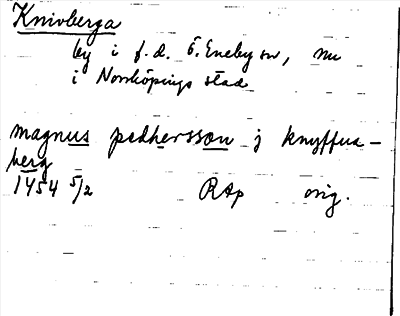 Knivberga
by i f.d. Ö. Eneby sn, nu
i Norrköpings stad
magnus pædhersson j knyffua-
berg
1454 5/2 RAp orig.